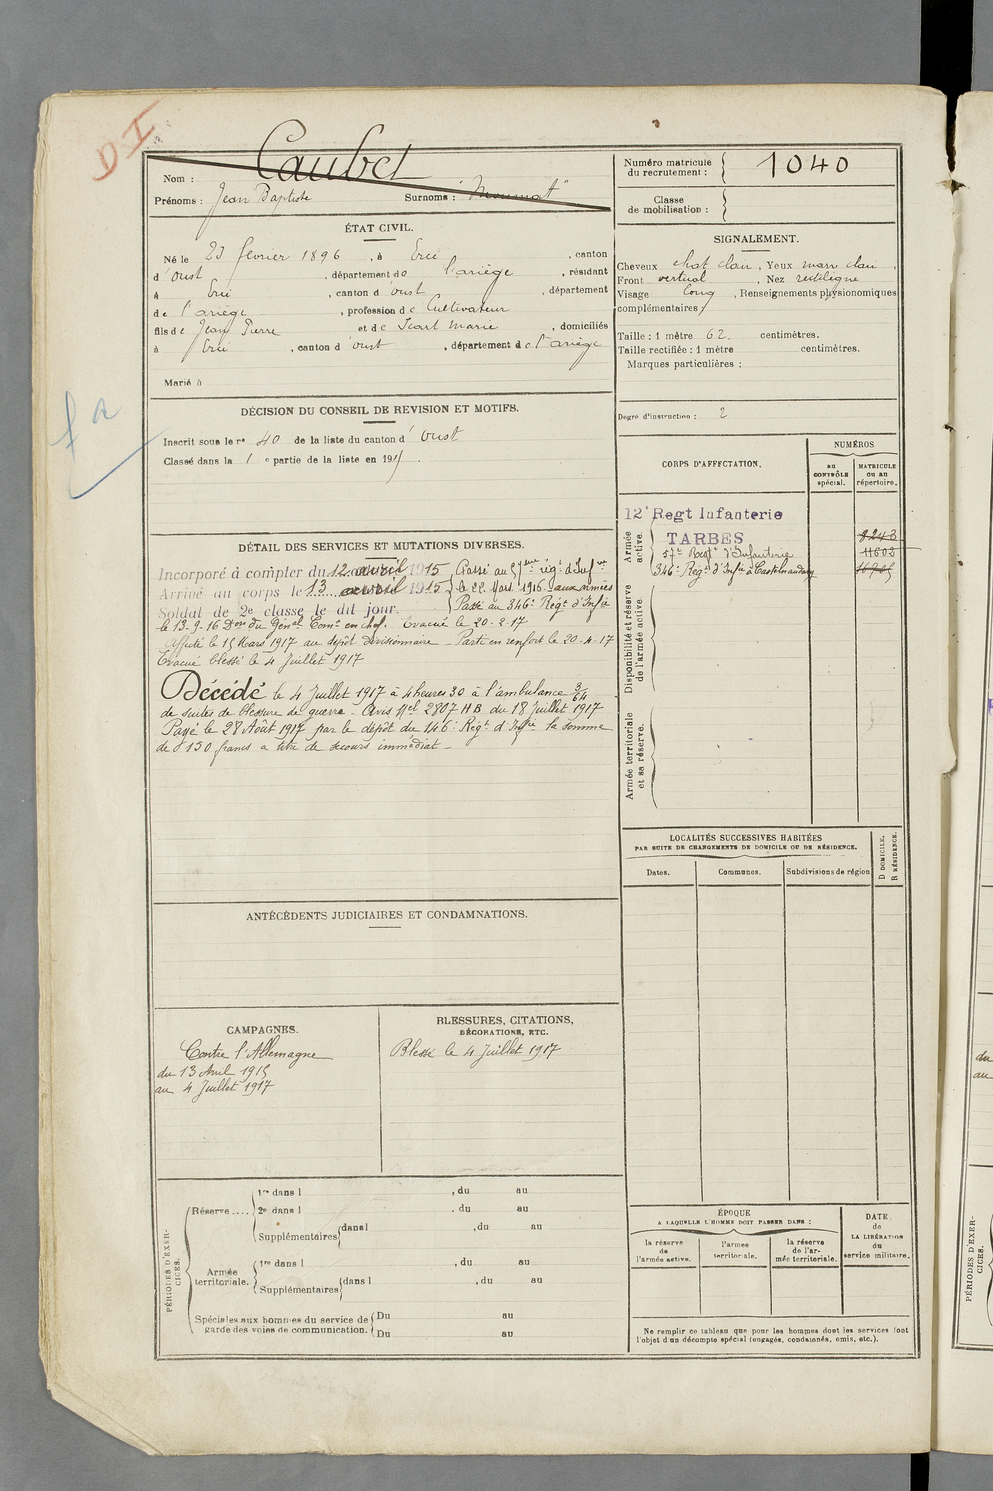 DI
Nom : Caubet
Prénoms : Jean Baptiste Surnoms :
Numéro matricule du recrutement : 1040
Classe de mobilisation :
ÉTAT CIVIL.
Né le 23 février 1896, à Ercé, canton
d'oust, département de l'ariège, résidant
à Ercé, canton d'oust, département
de l'ariège, profession de Cultivateur
fils de Jean Pierre et de Icart Marie, domiciliés
à Ercé, canton d'oust, département de l'ariège
Marié à
SIGNALEMENT.
Cheveux chat clair, Yeux marr clair,
Front vertical, Nez rectiligne
Visage long, Renseignements physionomiques
complémentaires
Taille : 1 mètre 62. centimètres.
Taille rectifiée : 1 mètre centimètres.
Marques particulières :
Degré d'instruction : 2
DÉCISION DU CONSEIL DE REVISION ET MOTIFS.
Inscrit sous le n° 40 de la liste du canton d'oust
Classé dans la 1 e partie de la liste en 1915.
CORPS D'AFFECTATION.
NUMÉROS
au CONTRÔLE spécial.
MATRICULE ou au répertoire.
Armée active.
12e Regt Infanterie
TARBES 8243
57e Regt d'Infanterie 11603
346e Regt d'Infie à Castelnaudary
Disponibilité et réserve de l'armée active.
Armée territoriale et sa réserve.
DÉTAIL DES SERVICES ET MUTATIONS DIVERSES.
Incorporé à compter du 12 avril 1915 Passé au 57ème régt d'Infie
Arrivé au corps le 13 avril 1915 le 22 Mars 1916 aux armées
Soldat de 2e classe le dit jour. Passé au 346e Régt d'Infie
le 13-9-16 Don du Génal Comt en chef. Evacué le 20-2-17
Affecté le 15 Mars 1917 au dépôt divisionnaire - Parti en renfort le 20-4-17
Evacué blessé le 4 Juillet 1917
Décédé le 4 Juillet 1917 à 4 heures 30 à l'ambulance 3/64
de suites de blessure de guerre - Avis Mel 2807 HB du 18 Juillet 1917
Payé le 28 Août 1917 par le dépôt du 146e Régt d'Infie la somme
de 150 francs à titre de secours immédiat -
LOCALITÉS SUCCESSIVES HABITÉES
PAR SUITE DE CHANGEMENTS DE DOMICILE OU DE RÉSIDENCE.
Dates. Communes. Subdivisions de région
D DOMICILE.
R RÉSIDENCE.
ANTÉCÉDENTS JUDICIAIRES ET CONDAMNATIONS.
CAMPAGNES.
Contre l'Allemagne
du 13 Avril 1915
au 4 Juillet 1917
BLESSURES, CITATIONS,
DÉCORATIONS, ETC.
Blessé le 4 Juillet 1917
PÉRIODES D'EXERCICES.
Réserve....
1re dans l , du au
2e dans l , du au
Supplémentaires dans l , du au
Armée territoriale.
1re dans l , du au
Supplémentaires dans l , du au
Spéciales aux hommes du service de Du au
garde des voies de communication. Du au
ÉPOQUE
A LAQUELLE L'HOMME DOIT PASSER DANS :
la réserve de l'armée active.
l'armée territoriale.
la réserve de l'armée territoriale.
DATE de LA LIBÉRATION du service militaire.
Ne remplir ce tableau que pour les hommes dont les services font
l'objet d'un décompte spécial (engagés, condamnés, omis, etc.).
du
au
PÉRIODES D'EXERCICES.